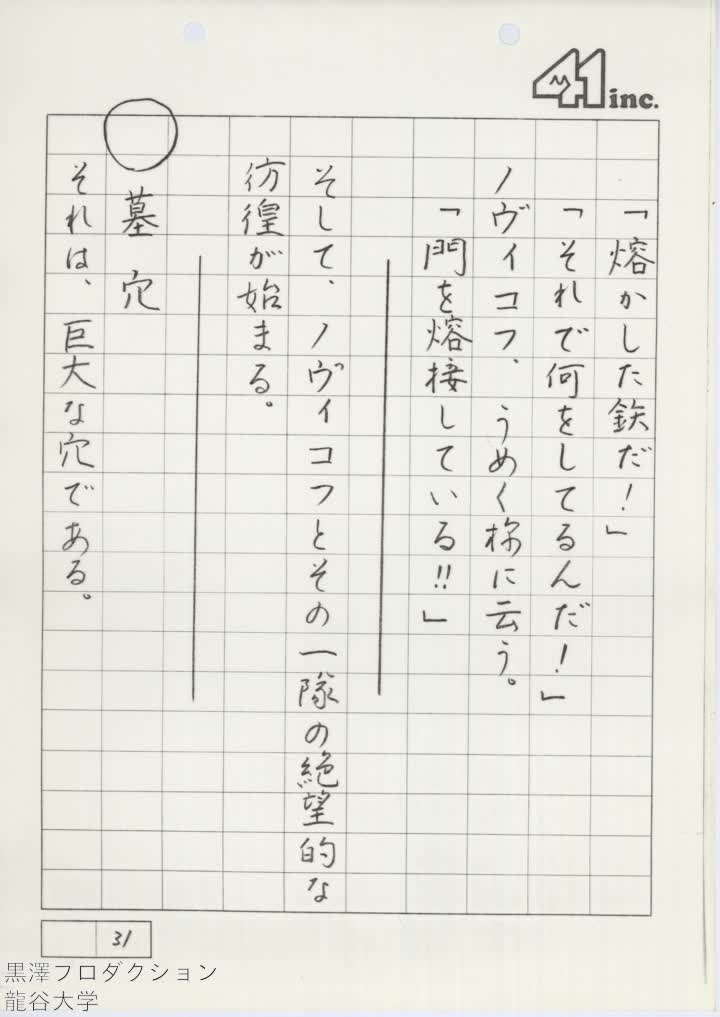 41 inc.
「熔かした鉄だ！」
「それで何をしてるんだ！」
ノヴィコフ、うめく様に云う。
「門を熔接している!!」
そして、ノヴィコフとその一隊の絶望的な
彷徨が始まる。
墓穴
それは、巨大な穴である。
31
黒澤プロダクション
龍谷大学